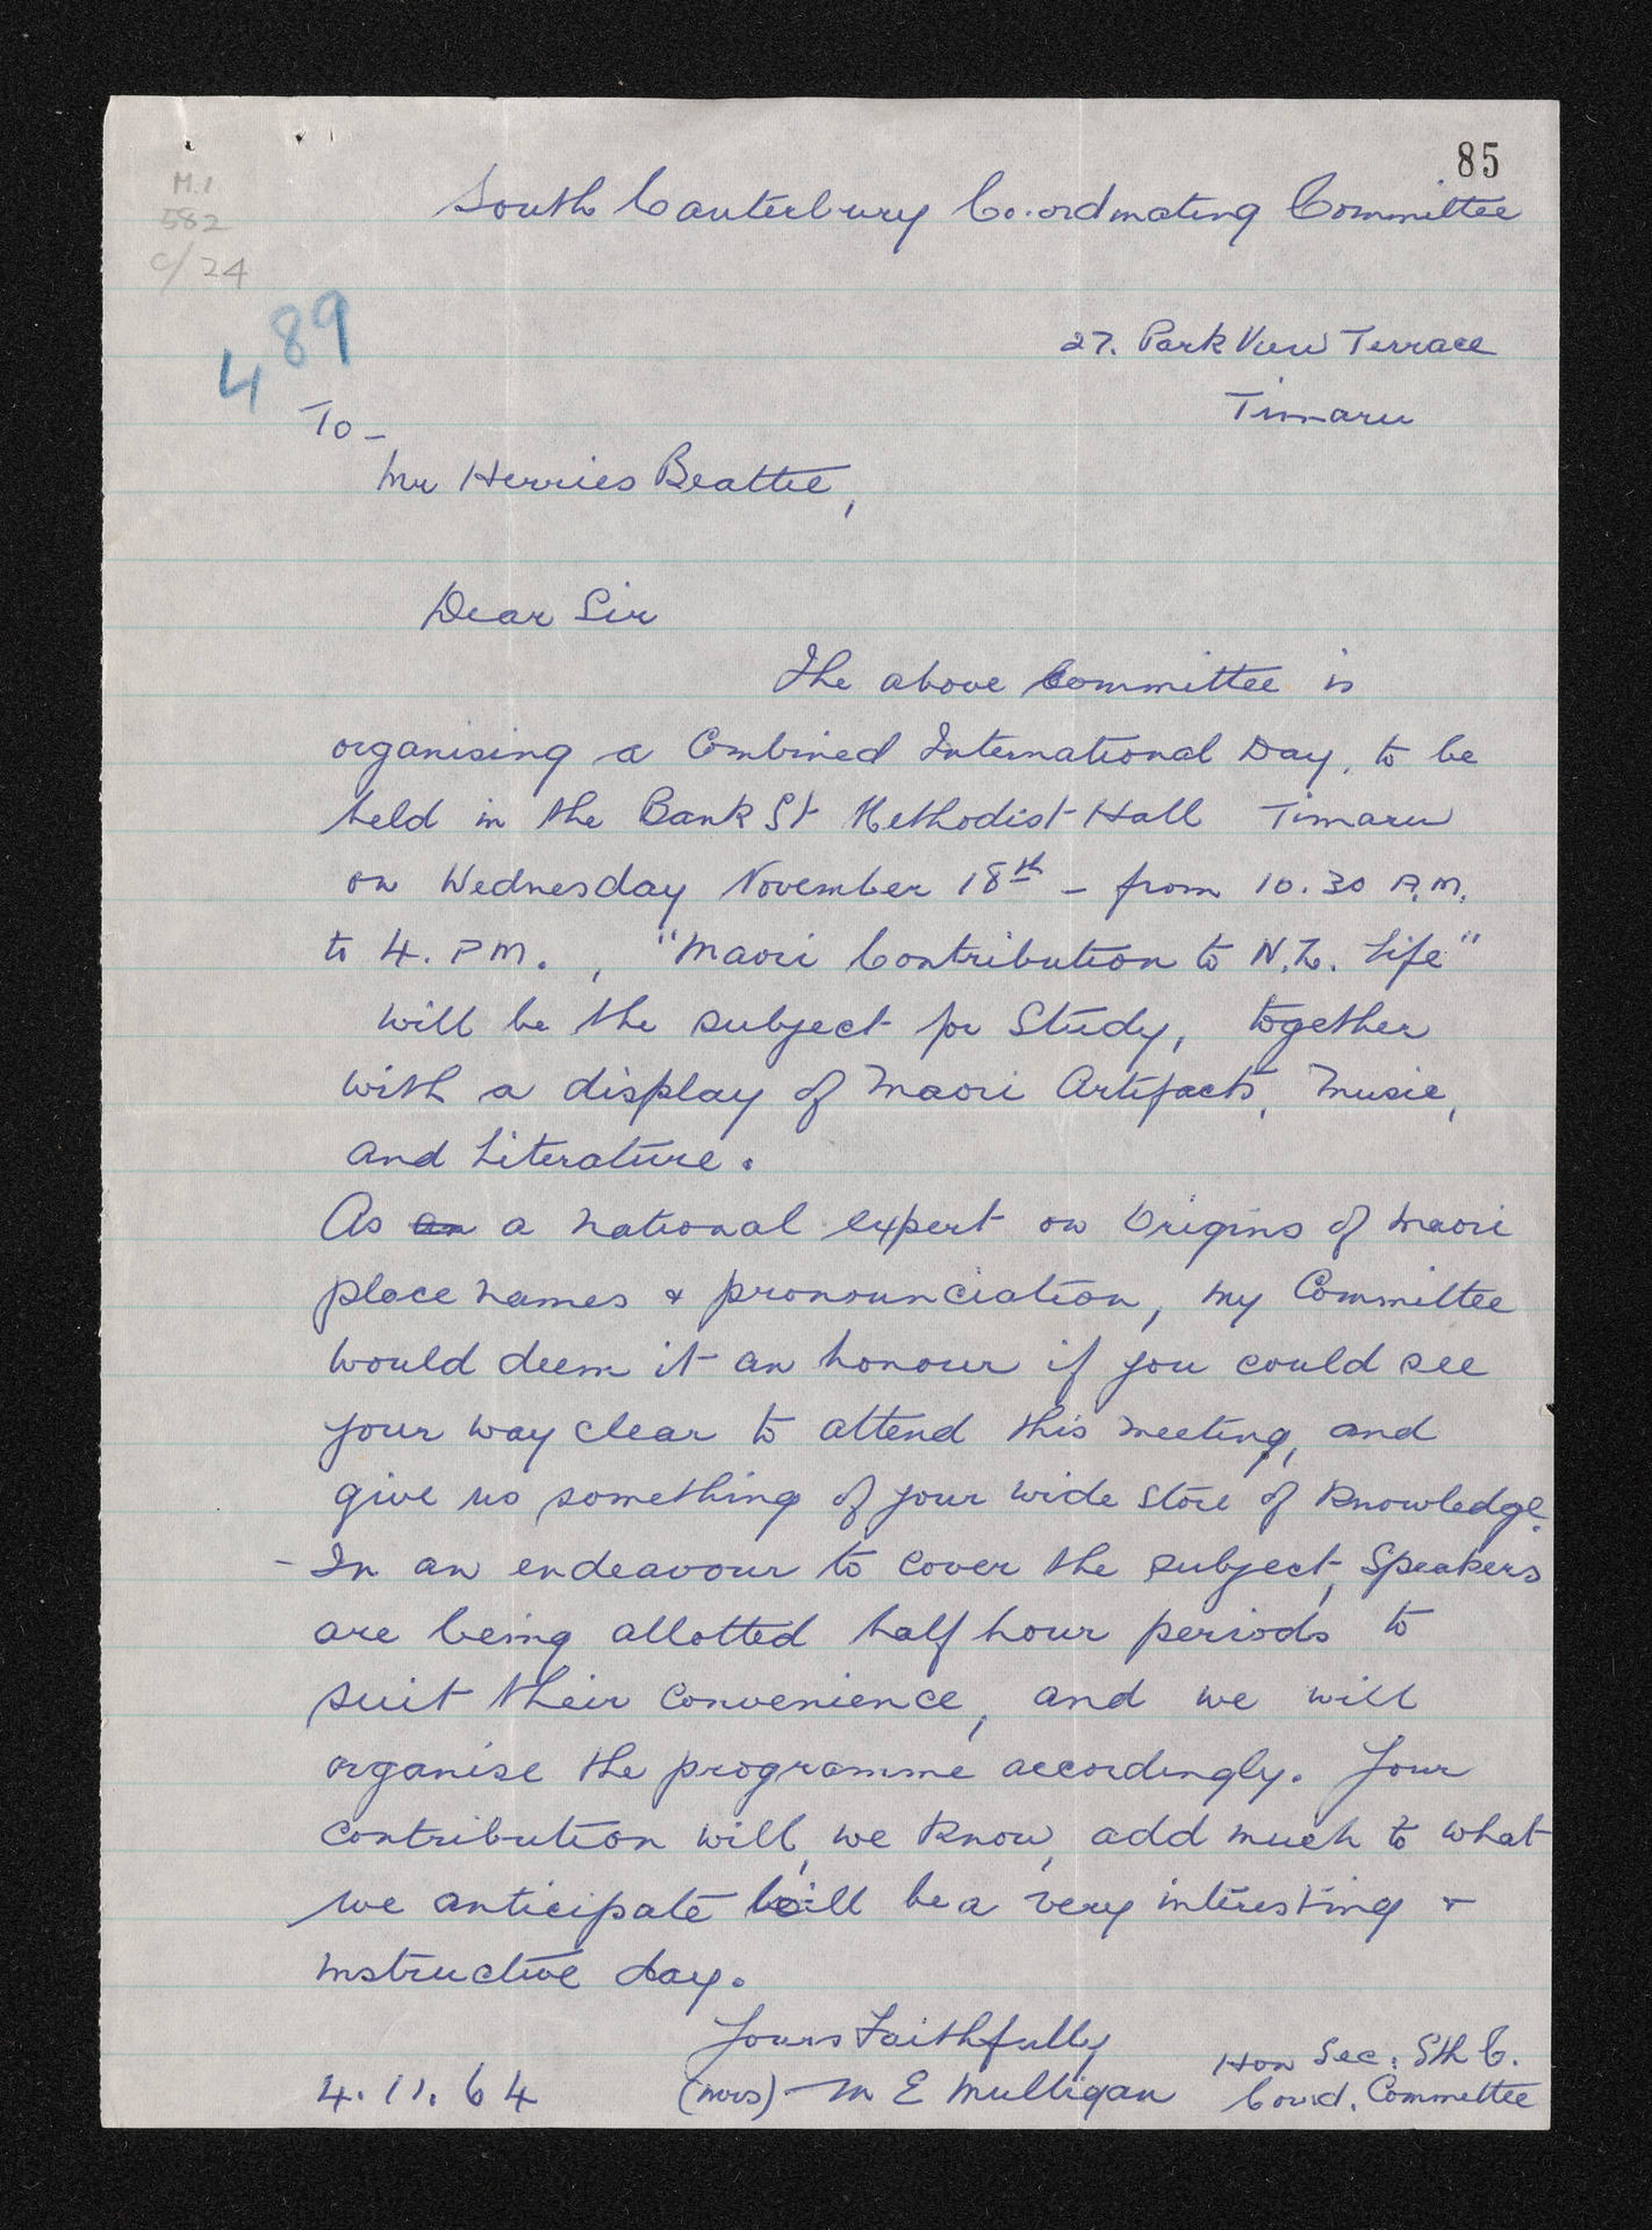 85
M.1
582
C/24
South Canterbury Co.ordinating Committee
489
27. Park View Terrace
Timaru
To -
Mr Herries Beattie,
Dear Sir
The above Committee is
organising a Combined International Day, to be
held in the Bank St Methodist Hall Timaru
on Wednesday November 18th - from 10.30 A.M.
to 4. PM. , "Maori Contribution to N.Z. Life"
will be the subject for Study, together
with a display of Maori Artifacts, Music,
and Literature.
As an a National expert on Origins of Maori
place names & pronounciation, my Committee
would deem it an honour if you could see
your way clear to attend this meeting, and
give us something of your wide store of knowledge.
- In an endeavour to cover the subject, Speakers
are being allotted half hour periods to
suit their convenience, and we will
organise the programme accordingly. Your
contribution will, we know, add much to what
we anticipate will be a very interesting &
instructive day.
Yours Faithfully
4.11.64 (Mrs) M E Mulligan Hon Sec. Sth C.
Coord. Committee